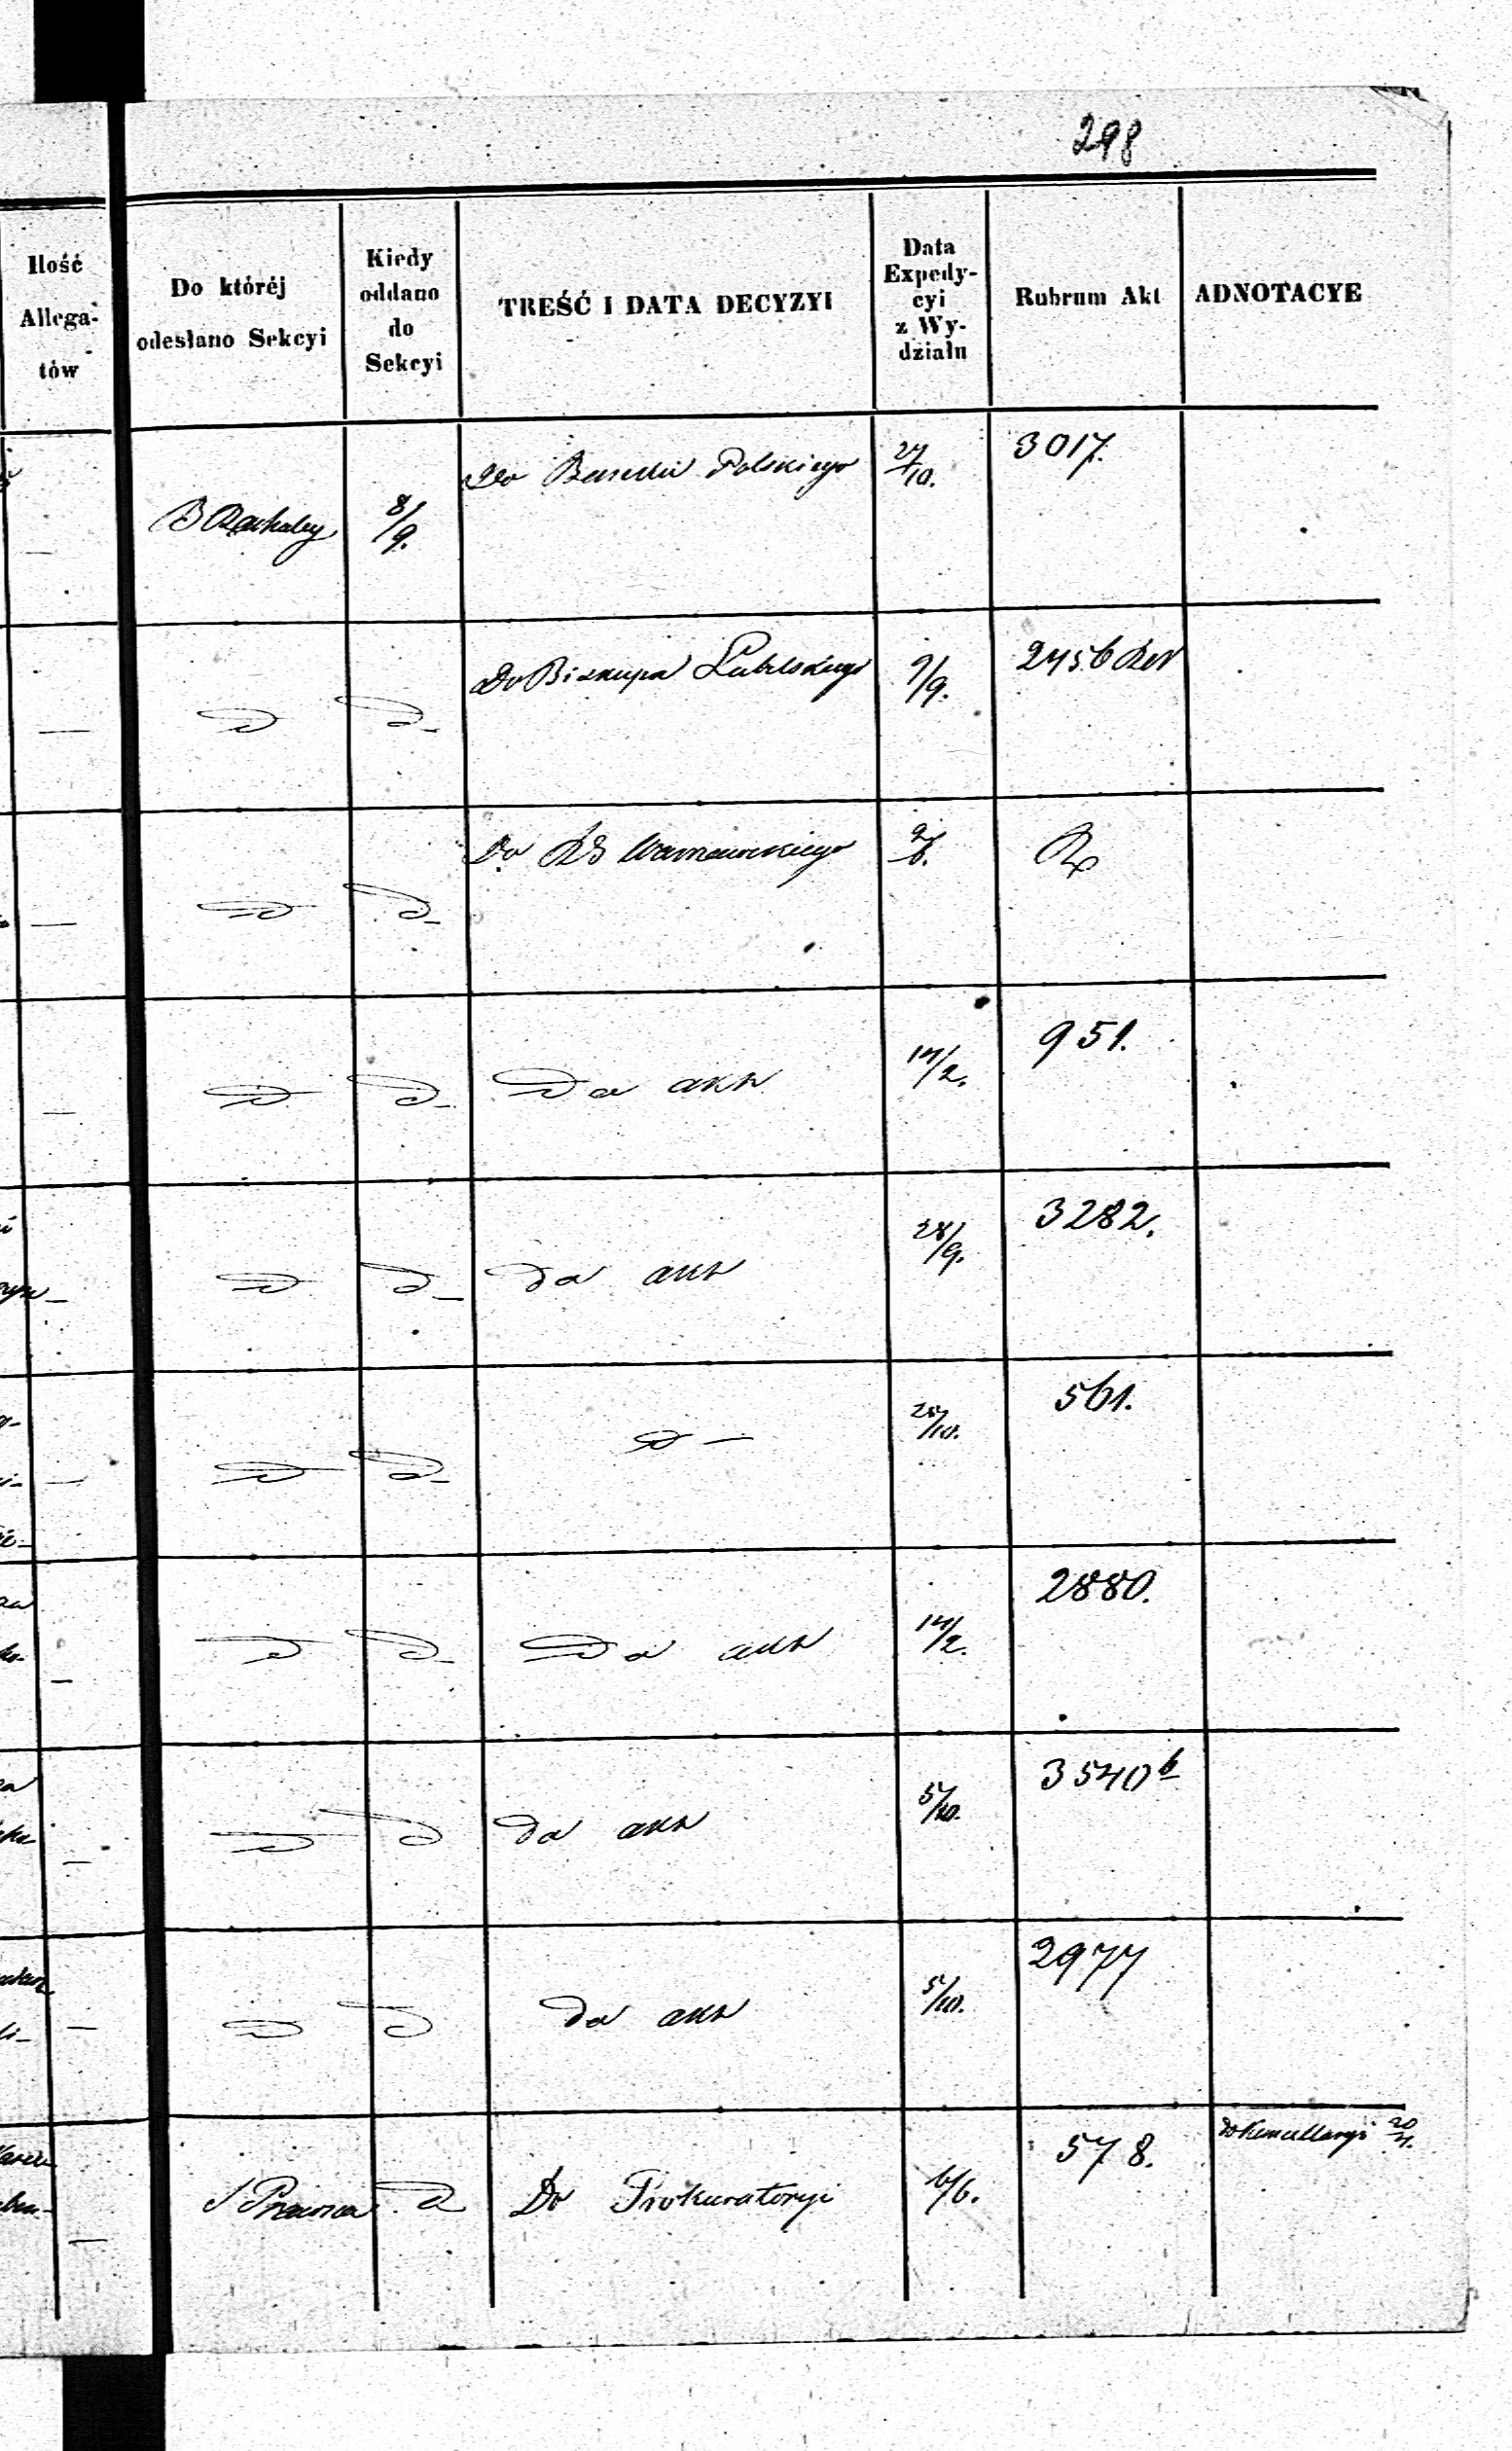 298
Ilość Allega- tów
Do któréj odesłano Sekcyi
Kiedy oddano do Sekcyi
TREŚĆ I DATA DECYZYI
Data Expedy- cyi z Wy- działu
Rubrum Akt
ADNOTACYE
8/9. Polskiego 27/10. 3017.
Do Biskupa Lubelskiego 9/9. 2456
Do Warszawskiego
Do akt 14/2. 951.
Do akt 28/9. 3282.
561.
Do akt 14/2. 2880.
Do akt 5/10. 3540 b
Do akt 5/10. 2977
S Prawna Do Prokuratoryi 6/6. 578. do Kancellaryi 20/4.